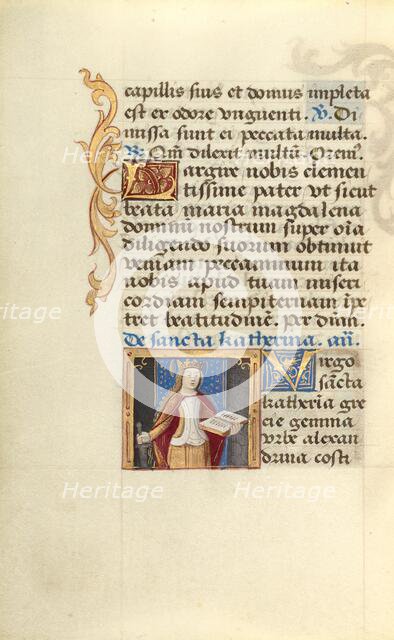 capillis suis et domus impleta
est ex odore unguenti. V. Di
missa sunt ei peccata multa.
R. Qm̄ dilexit multū. Orem⁹.
Largire nobis clemen
tissime pater ut sicut
beata maria magdalena
dominū nostrum super oīa
diligendo suorum obtinuit
veniam peccaminum ita
nobis apud tuam miseri
cordiam sempiternam īpe
tret beatitudinē. Per dn̄m.
De sancta katherina. añ.
Virgo
sancta
katheria gre
cie gemma
urbe alexan
drina costi
Heritage
Heritage
Heritage
Heritage
Heritage
Heritage